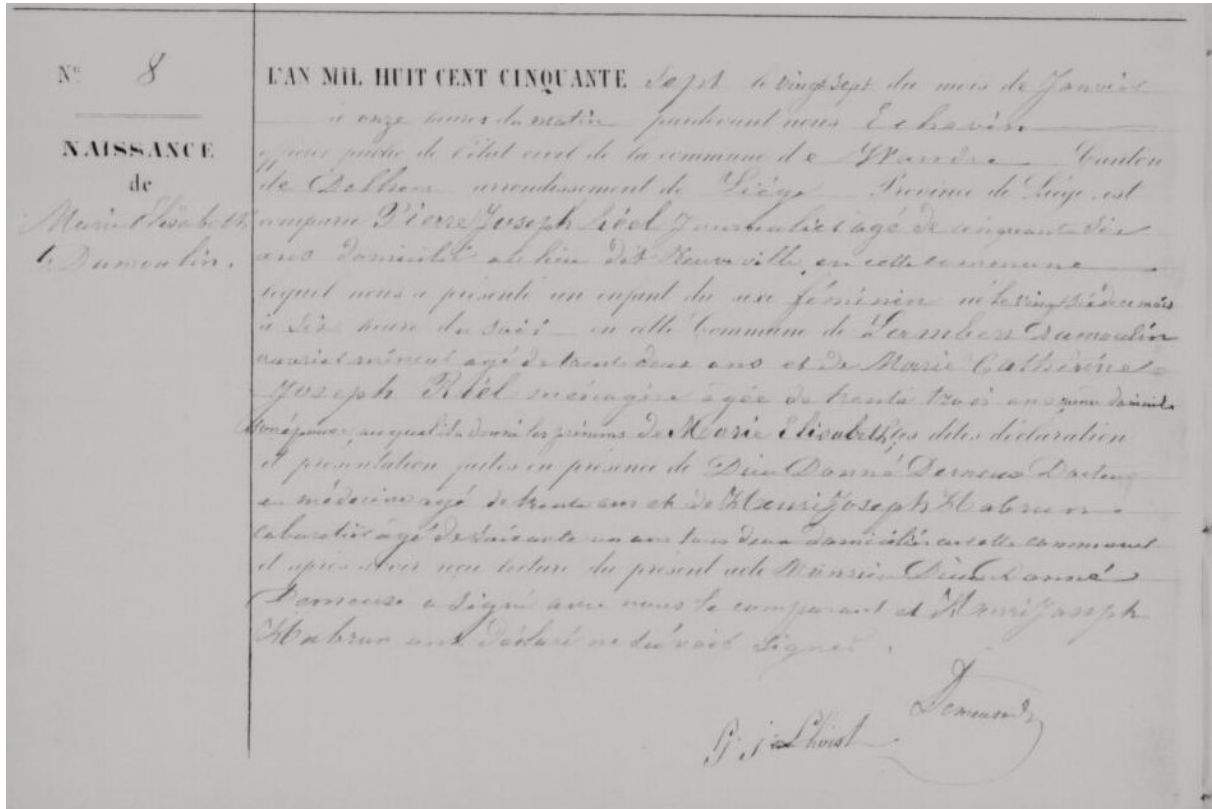 N° 8
NAISSANCE
de
Marie Élisabeth
Dumoulin.
L'AN MIL HUIT CENT CINQUANTE sept le vingt sept du mois de Janvier
à onze heures du matin pardevant nous Echevin
officier public de l'état civil de la commune de Wandre Canton
de Dalhem arrondissement de Liége Province de Liége, est
comparu Pierre Joseph journalier agé de cinquante six
ans domicilié au lieu dit en cette commune
lequel nous a présenté un enfant du sexe féminin né le vingt six de ce mois
à six heures du soir en cette Commune de Lambert Dumoulin
agé de trente deux ans et de Marie Catherine
Joseph ménagère agée de trente trois ans
son épouse, auquel il a donné les prénoms de Marie Elisabeth, les dites déclaration
et présentation faites en présence de Dieu Donné Demeuse Docteur
en médecine agé de trente ans et de Henri Joseph Habran
cabaretier agé de soixante un ans tous deux domiciliés en cette commune
et après avoir reçu lecture du présent acte Monsieur Dieu Donné
Demeuse a signé avec nous le comparant et Henri Joseph
Habran ont déclaré ne savoir signer.
Demeuse
J. Lhoist